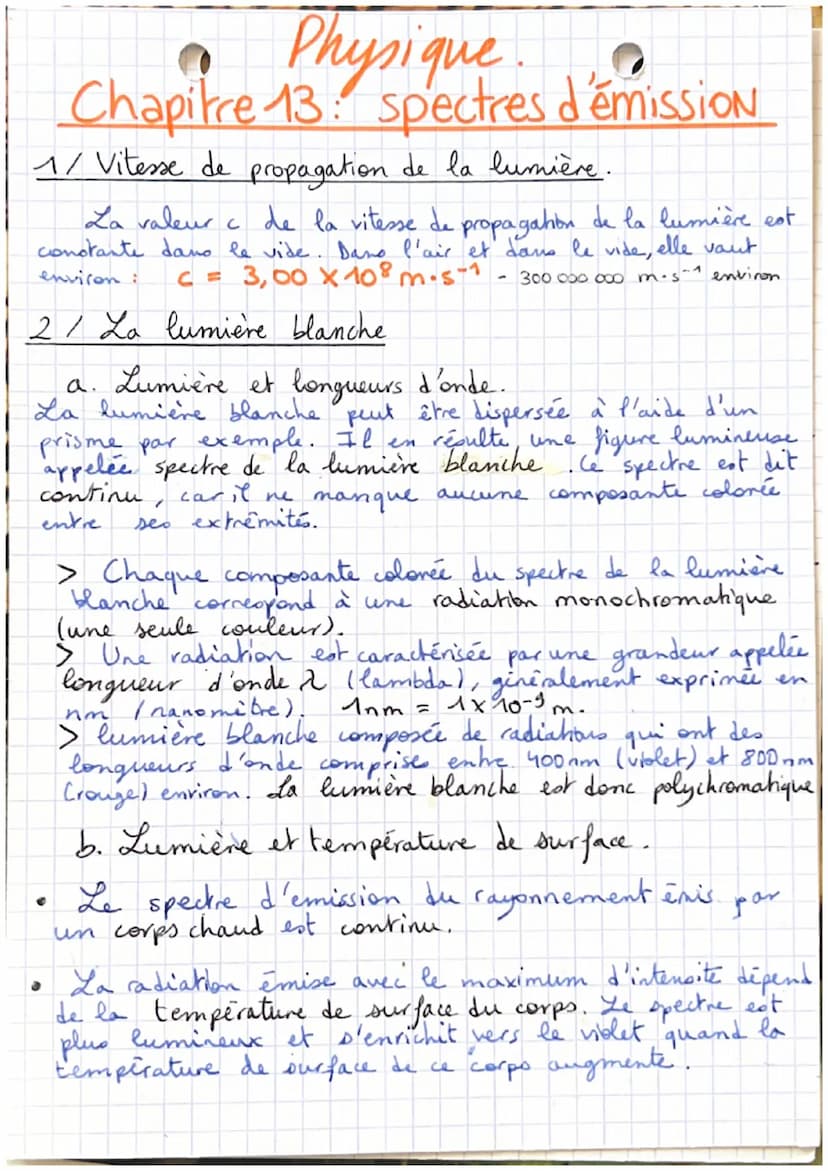 Physique.
Chapitre 13 : spectres d'émission
1/ Vitesse de propagation de la lumière.
La valeur c de la vitesse de propagation de la lumière est
constante dans le vide. Dans l'air et dans le vide, elle vaut
environ : c = 3,00 × 10⁸ m.s⁻¹ - 300 000 000 m.s⁻¹ environ
2 / La lumière blanche
a. Lumière et longueurs d'onde.
La lumière blanche peut être dispersée à l'aide d'un
prisme par exemple. Il en résulte, une figure lumineuse
appelée spectre de la lumière blanche. Ce spectre est dit
continu, car il ne manque aucune composante colorée
entre ses extrêmités.
> Chaque composante colorée du spectre de la lumière
blanche correspond à une radiation monochromatique
(une seule couleur).
> Une radiation est caractérisée par une grandeur appelée
longueur d'onde λ (lambda), généralement exprimée en
nm (nanomètre). 1nm = 1×10⁻⁹ m.
> lumière blanche composée de radiations qui ont des
longueurs d'onde comprises entre 400nm (violet) et 800nm
(rouge) environ. La lumière blanche est donc polychromatique
b. Lumière et température de surface.
• Le spectre d'émission du rayonnement émis par
un corps chaud est continu.
• La radiation émise avec le maximum d'intensité dépend
de la température de surface du corps. Le spectre est
plus lumineux et s'enrichit vers le violet quand la
température de surface de ce corps augmente.